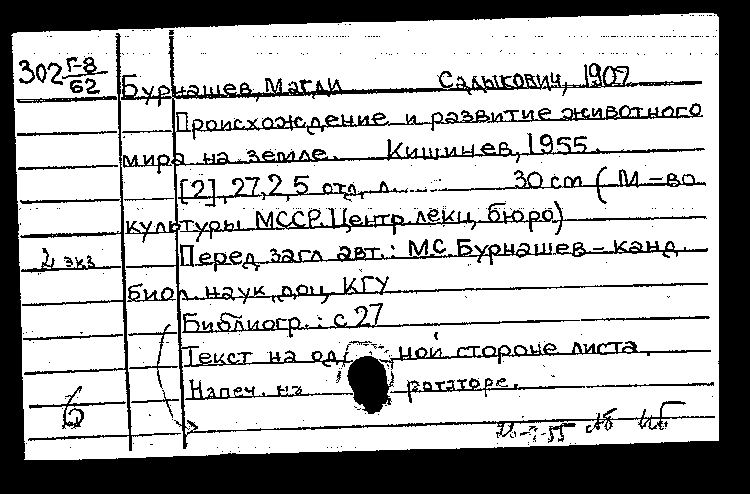 302 Г-8/62
Бурнашев, Магди Садыкович, 1907
Происхождение и развитие животного
мира на земле. Кишинев, 1955.
[2], 27, 2, 5 отд. л. 30 cm (М-во
культуры МССР. Центр. лекц. бюро)
2 экз
Перед загл авт.: М.С. Бурнашев – канд.
биол. наук, доц. КГУ
Библиогр.: с 27
Текст на одной стороне листа.
Напеч. на ротаторе.
6